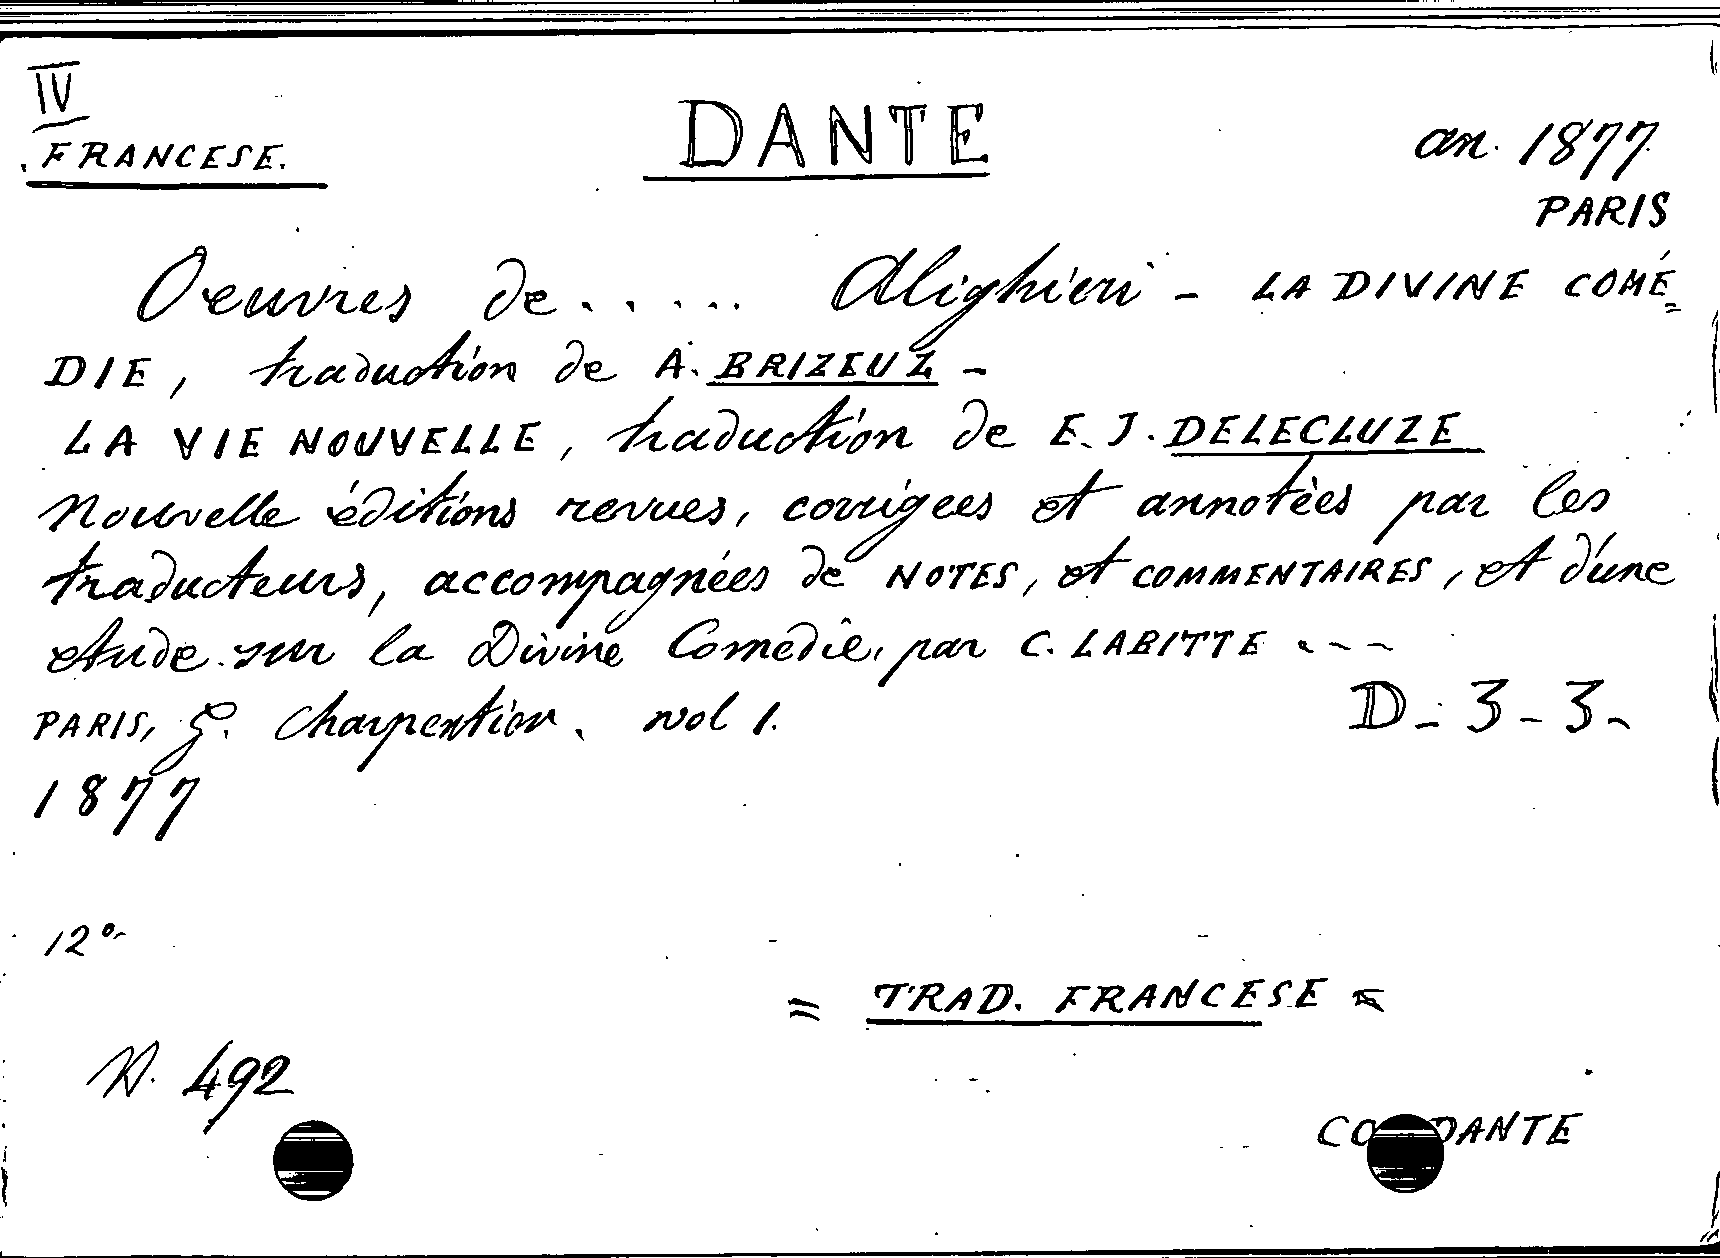 IV
. FRANCESE.
DANTE
an. 1877
PARIS
Oeuvres de..... Alighieri - LA DIVINE COMÉ=
DIE, traduction de A. BRIZEUZ -
LA VIE NOUVELLE, traduction de E. J. DELECLUZE
Nouvelle éditions revues, corrigees et annotèes par les
traducteurs, accompagnées de NOTES, et COMMENTAIRES, et d'une
etude sur la Divine Comedie, par C. LABITTE ---
PARIS, G. Charpentier. vol 1.
D - 3 - 3 -
1877
12°
= TRAD. FRANCESE =
N. 492
DANTE